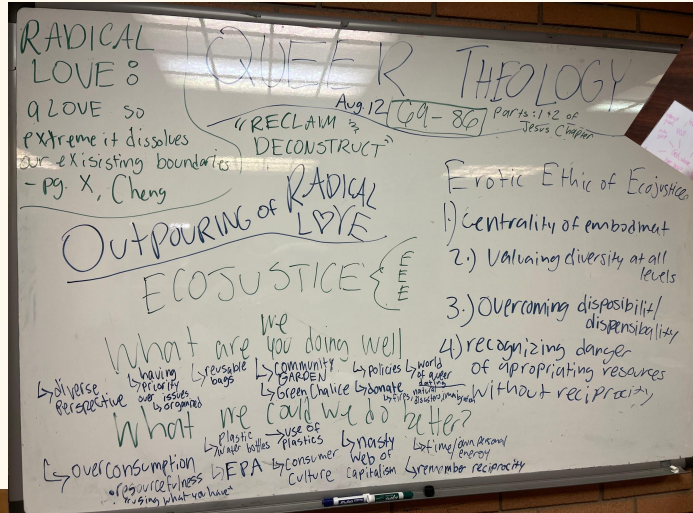 RADICAL
LOVE:
a LOVE so
extreme it dissolves
our exisisting boundaries
- pg. X, Cheng
QUEER THEOLOGY
Aug. 12 69-86 Parts: 1+2 of
Jesus Chapter
"RECLAIM &
DECONSTRUCT"
OUTPOURING of RADICAL
LOVE
ECOJUSTICE { E
E
E
E
Erotic Ethic of Ecojustice
1.) Centrality of embodimet
2.) Valuaing diversity at all
levels
3.) Overcoming disposibilit/
dispensibality
4.) recognizing danger
of apropriating resources
without reciprocity
we
What are you doing well
↳ diverse
Perspective
↳ having
priority
over issues
↳ organized
↳ reusable
bags
↳ COMMUNITY
GARDEN
↳ Green Chalice
↳ policies
↳ donate
↳ World
of queer
dating
natural
What we could we do better?
↳ overconsumption
• resourcefulness
"using what you have"
↳ Plastic
water bottles
→ use of
plastics
↳ EPA
↳ Consumer
culture
↳ nasty
web of
capitalism
↳ time/own personal
energy
↳ remember reciprocity